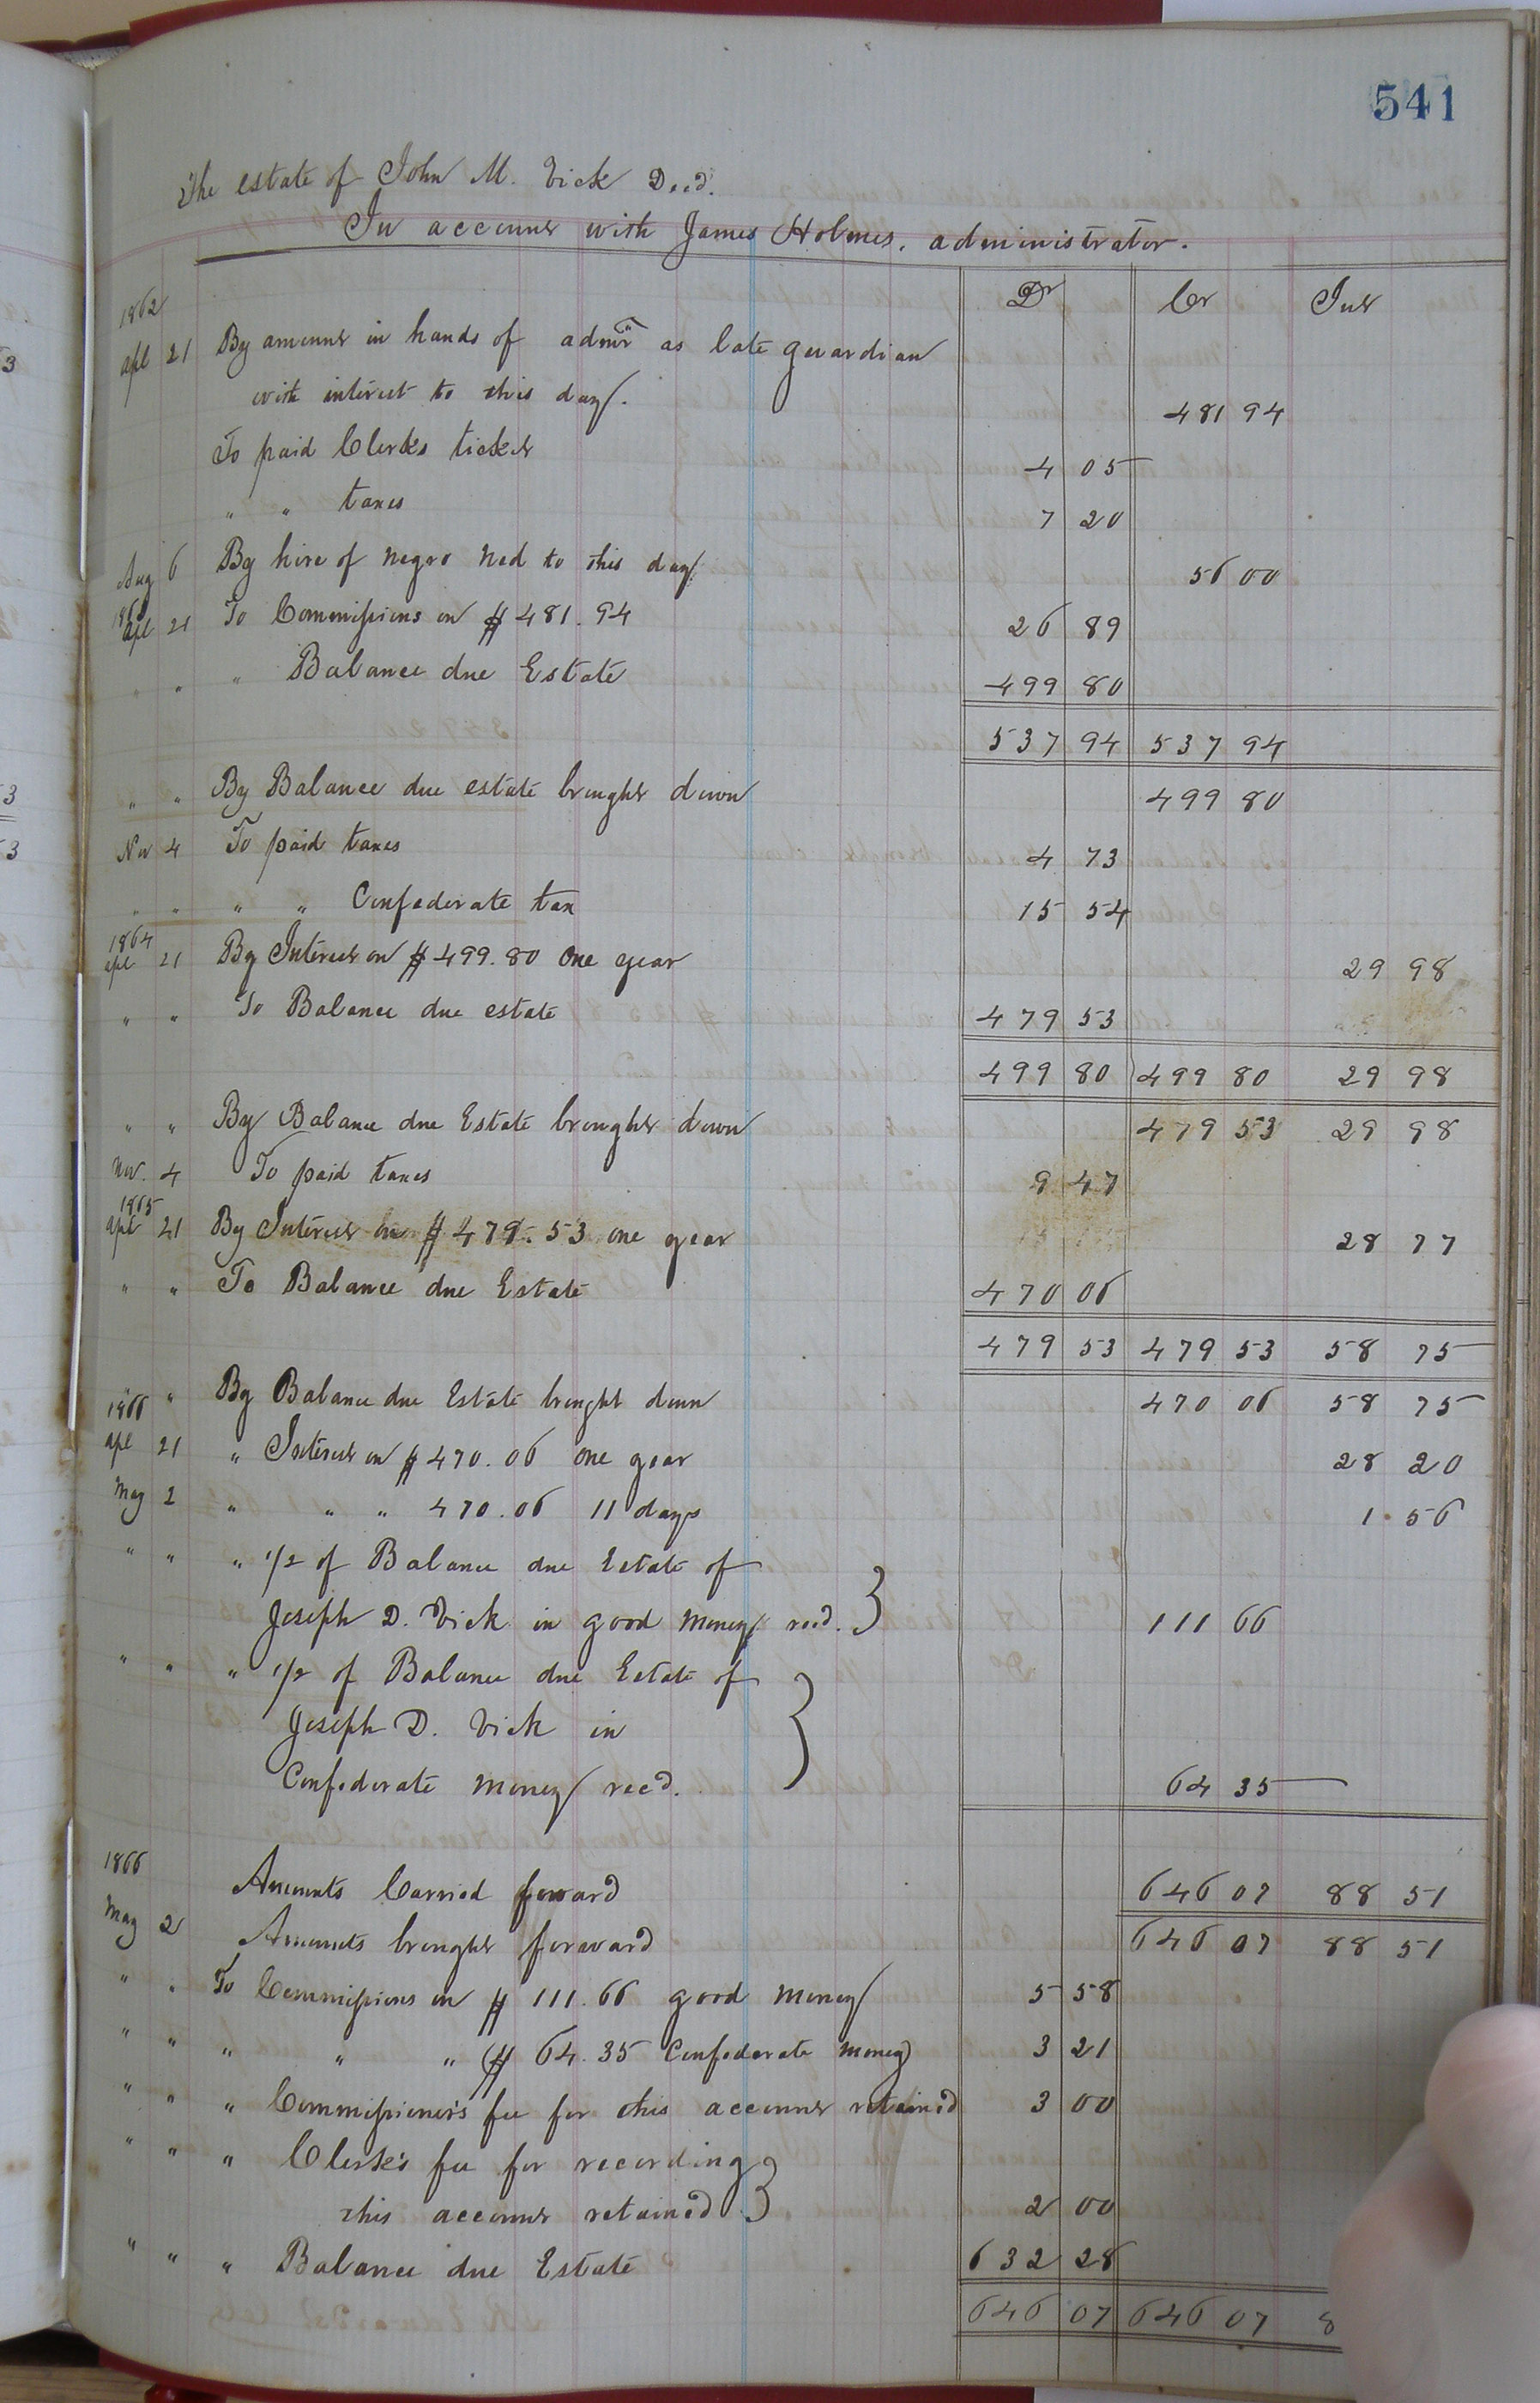 541
The estate of John M. Vick Decd.
In account with James Holmes, administrator.
Dr Cr Int
1862
Apl 21 By amount in hands of admr as late guardian
with interest to this day. 481 94
To paid Clerks ticket 4 05
" " taxes 7 20
Aug 6 By hire of negro Ned to this day 56 00
Apl 21 To Commissions on $481.94 26 89
" " " Balance due Estate 499 80
537 94 537 94
" " By Balance due estate brought down 499 80
Nov 4 To paid taxes 4 73
" " " " Confederate tax 15 54
1864
Apl 21 By Interest on $499.80 One year 29 98
" " To Balance due estate 479 53
499 80 499 80 29 98
" " By Balance due Estate brought down 479 53 29 98
Nov. 4 To paid taxes 9 47
1865
Apl 21 By Interest on $479.53 one year 28 77
" " To Balance due Estate 470 06
479 53 479 53 58 75
" By Balance due Estate brought down 470 06 58 75
1866
Apl 21 " Interest on $470.06 one year 28 20
May 2 " " " 470.06 11 days 1.56
" " " 1/2 of Balance due Estate of
Joseph D. Vick in good money recd. 111 66
" " " 1/2 of Balance due Estate of
Joseph D. Vick in
Confederate money recd. 64 35
1866
Amounts Carried forward 646 07 88 51
May 2 Amounts brought forward 646 07 88 51
" " To Commissions on $111.66 good money 5 58
" " " " " ($64.35 Confederate money) 3 21
" " " Commissioner's fee for this account retained 3 00
" " " Clerk's fee for recording
this account retained 2 00
" " " Balance due Estate 632 28
646 07 646 07 8